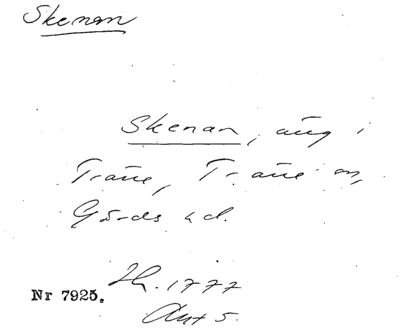 Skenan
Skenan, äng i
Träne, Träne sn,
Gärds hd.
Lh. 1777
Nr 7925.
Akt 5.